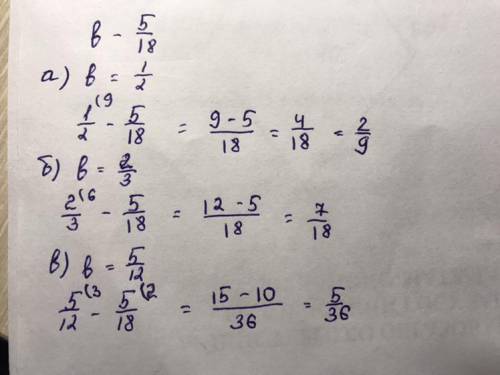 в - 5/18
а) в = 1/2
1/2 (9 - 5/18 = 9 - 5/18 = 4/18 = 2/9
б) в = 2/3
2/3 (6 - 5/18 = 12 - 5/18 = 7/18
в) в = 5/12
5/12 (3 - 5/18 (2 = 15 - 10/36 = 5/36